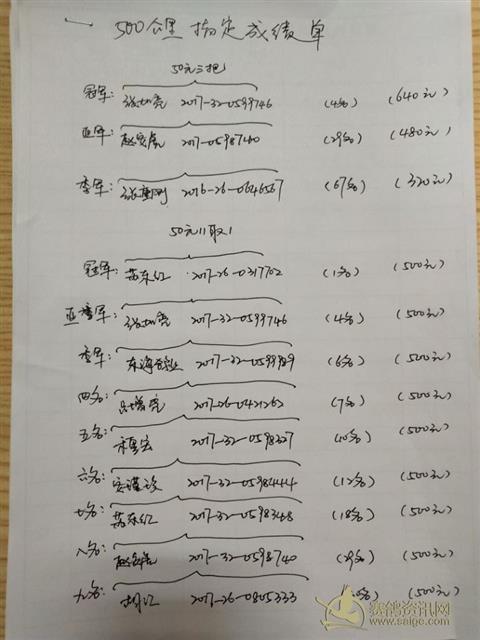 一 500公里指定成绩单
50元三把
冠军: 2017-32-0599746 (4名) (640元)
亚军: 2017-0598740 (29名) (480元)
季军: 2016-26-0646567 (67名) (320元)
50元11取1
冠军: 苏东红 2017-26-0317702 (1名) (500元)
亚军: 2017-32-0599746 (4名) (500元)
季军: 2017-32-0599989 (6名) (500元)
四名: 2017-26-0421262 (7名) (500元)
五名: 2017-32-0598327 (10名) (500元)
六名: 2017-32-0598444 (12名) (500元)
七名: 苏东红 2017-32-0598348 (18名) (500元)
八名: 2017-32-0598740 (29名) (500元)
九名: 2017-26-0805333 (500元)
赛鸽资讯网
www.saige.com